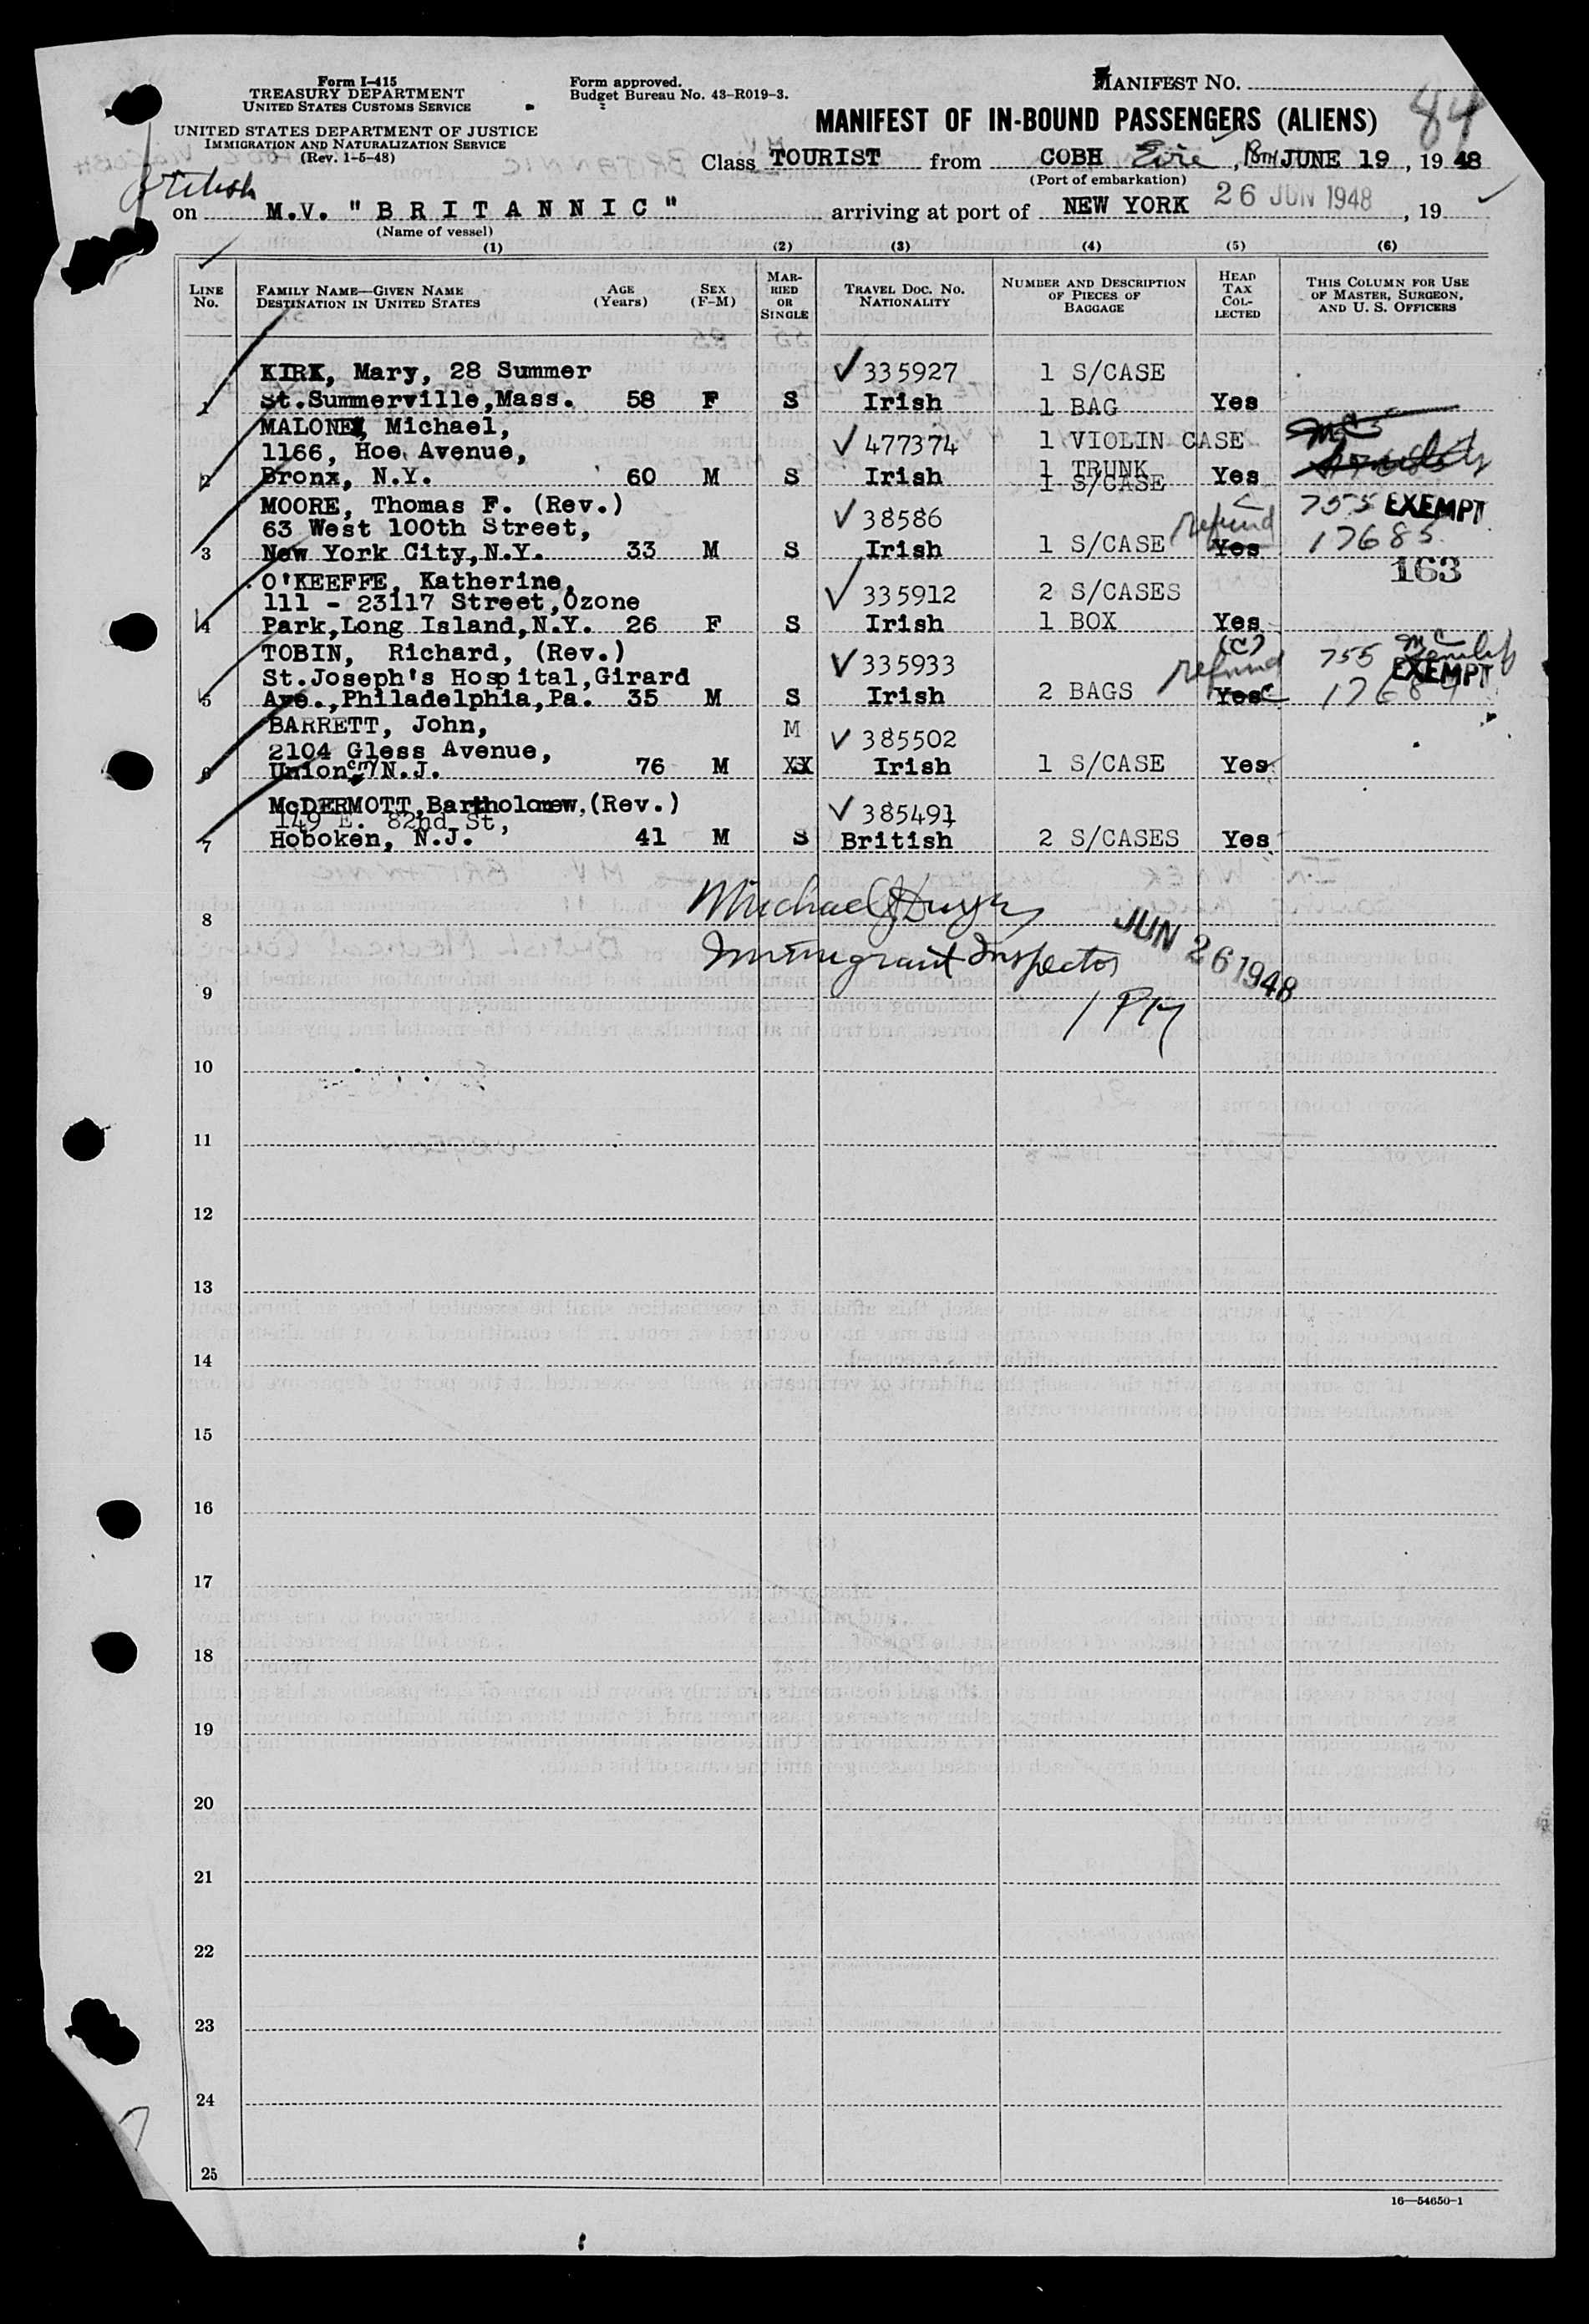 Form I-415
TREASURY DEPARTMENT
UNITED STATES CUSTOMS SERVICE
UNITED STATES DEPARTMENT OF JUSTICE
IMMIGRATION AND NATURALIZATION SERVICE
(Rev. 1-5-48)
Form approved.
Budget Bureau No. 43-R019-3.
MANIFEST NO.
84
MANIFEST OF IN-BOUND PASSENGERS (ALIENS)
Class TOURIST from COBH Eire, JUNE 19, 1948
(Port of embarkation)
British
on M.V. "BRITANNIC" arriving at port of NEW YORK 26 JUN 1948, 19
(Name of vessel)
(1) (2) (3) (4) (5) (6)
LINE No. FAMILY NAME—GIVEN NAME DESTINATION IN UNITED STATES AGE (Years) SEX (F-M) MARRIED OR SINGLE TRAVEL DOC. No. NATIONALITY NUMBER AND DESCRIPTION OF PIECES OF BAGGAGE HEAD TAX COLLECTED THIS COLUMN FOR USE OF MASTER, SURGEON, AND U. S. OFFICERS
KIRK, Mary, 28 Summer 335927 1 S/CASE
1 St.Summerville,Mass. 58 F S Irish 1 BAG Yes
MALONE, Michael,
1166, Hoe Avenue, 477374 1 VIOLIN CASE
1 TRUNK
2 Bronx, N.Y. 60 M S Irish 1 S/CASE Yes
MOORE, Thomas F. (Rev.) 755 EXEMPT
63 West 100th Street, 38586 refund
3 New York City,N.Y. 33 M S Irish 1 S/CASE Yes 17685
163
O'KEEFFE, Katherine,
111 - 23117 Street,Ozone 335912 2 S/CASES
4 Park,Long Island,N.Y. 26 F S Irish 1 BOX Yes
TOBIN, Richard, (Rev.) (C)
St.Joseph's Hospital,Girard 335933 refund 755 EXEMPT
5 Ave.,Philadelphia,Pa. 35 M S Irish 2 BAGS Yes
BARRETT, John, M
2104 Gless Avenue, 385502
6 Union N.J. 76 M XX Irish 1 S/CASE Yes
McDERMOTT,Bartholomew,(Rev.)
149 E. 82nd St, 385491
7 Hoboken, N.J. 41 M S British 2 S/CASES Yes
Michael J. Dwyer
8
Immigrant Inspector JUN 26 1948
9
1 PM
10
11
12
13
14
15
16
17
18
19
20
21
22
23
24
25
16—54650-1